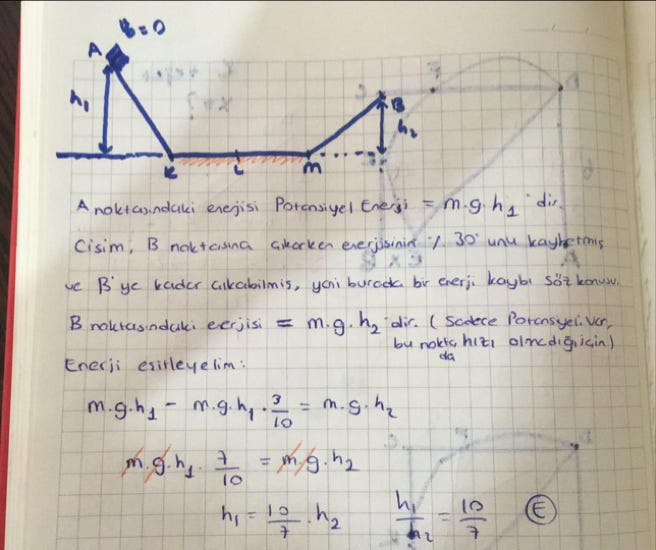 ϑ=0
A
h₁
B
h₂
K
L
M
A noktasındaki enerjisi Potansiyel Enerji = m.g.h₁ 'dir.
Cisim, B noktasına çıkarken enerjisinin % 30' unu kaybetmiş
ve B'ye kadar çıkabilmiş, yani burada bir enerji kaybı söz konusu.
B noktasındaki enerjisi = m.g.h₂ 'dir. ( Sadece Potansiyel. Var,
bu nokta hızı olmadığı için)
da
Enerji eşitleyelim:
m.g.h₁ - m.g.h₁ . 3/10 = m.g.h₂
m.g.h₁ . 7/10 = m.g.h₂
h₁ = 10/7 . h₂ h₁/h₂ = 10/7 E